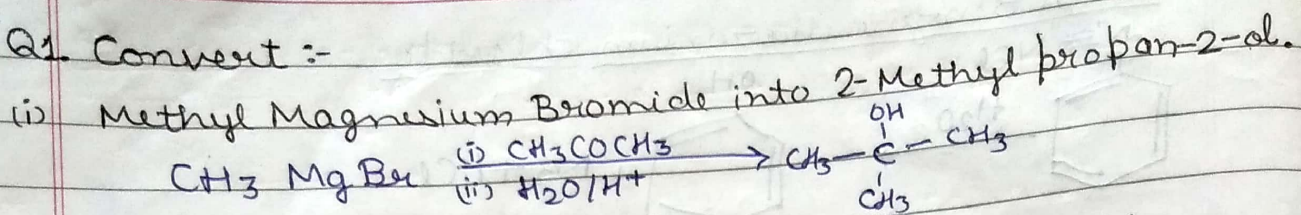 Q1. Convert :-
(i) Methyl Magnesium Bromide into 2-Methyl propan-2-ol.
OH
CH3 MgBr (i) CH3COCH3 → CH3-C-CH3
(ii) H2O/H+
CH3